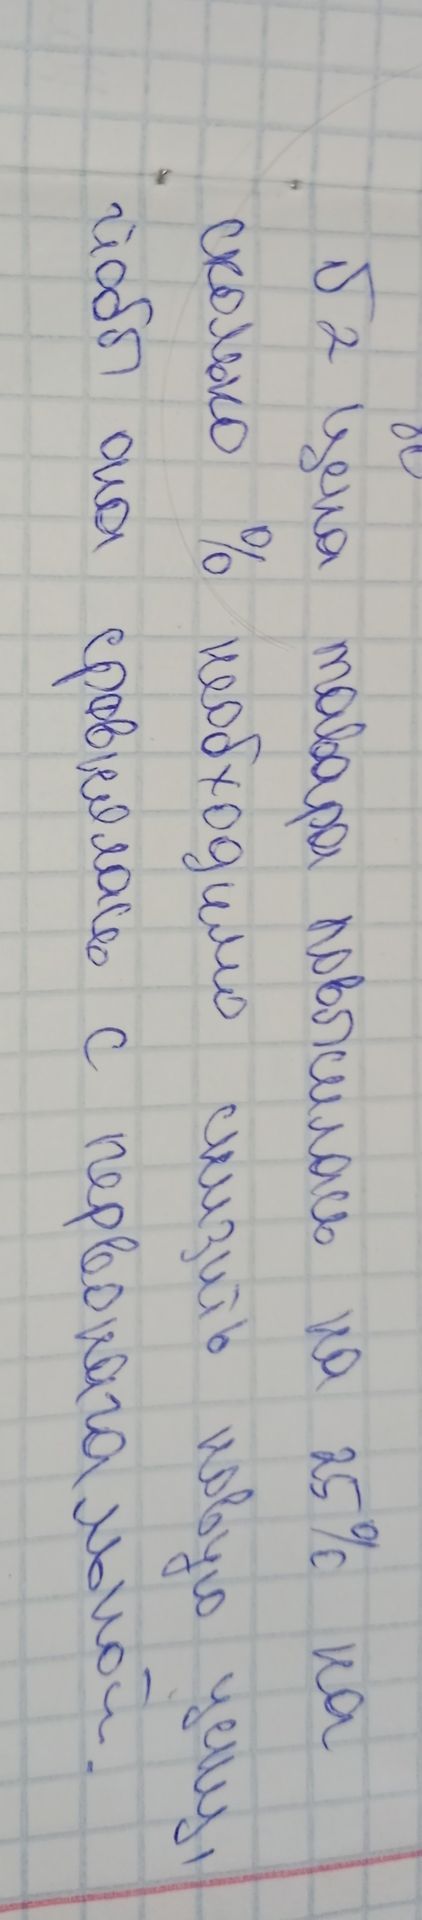 № 2 Цена товара повысилась на 25% на
сколько % необходимо снизить новую цену,
чтобы она сравнялась с первоначальной.